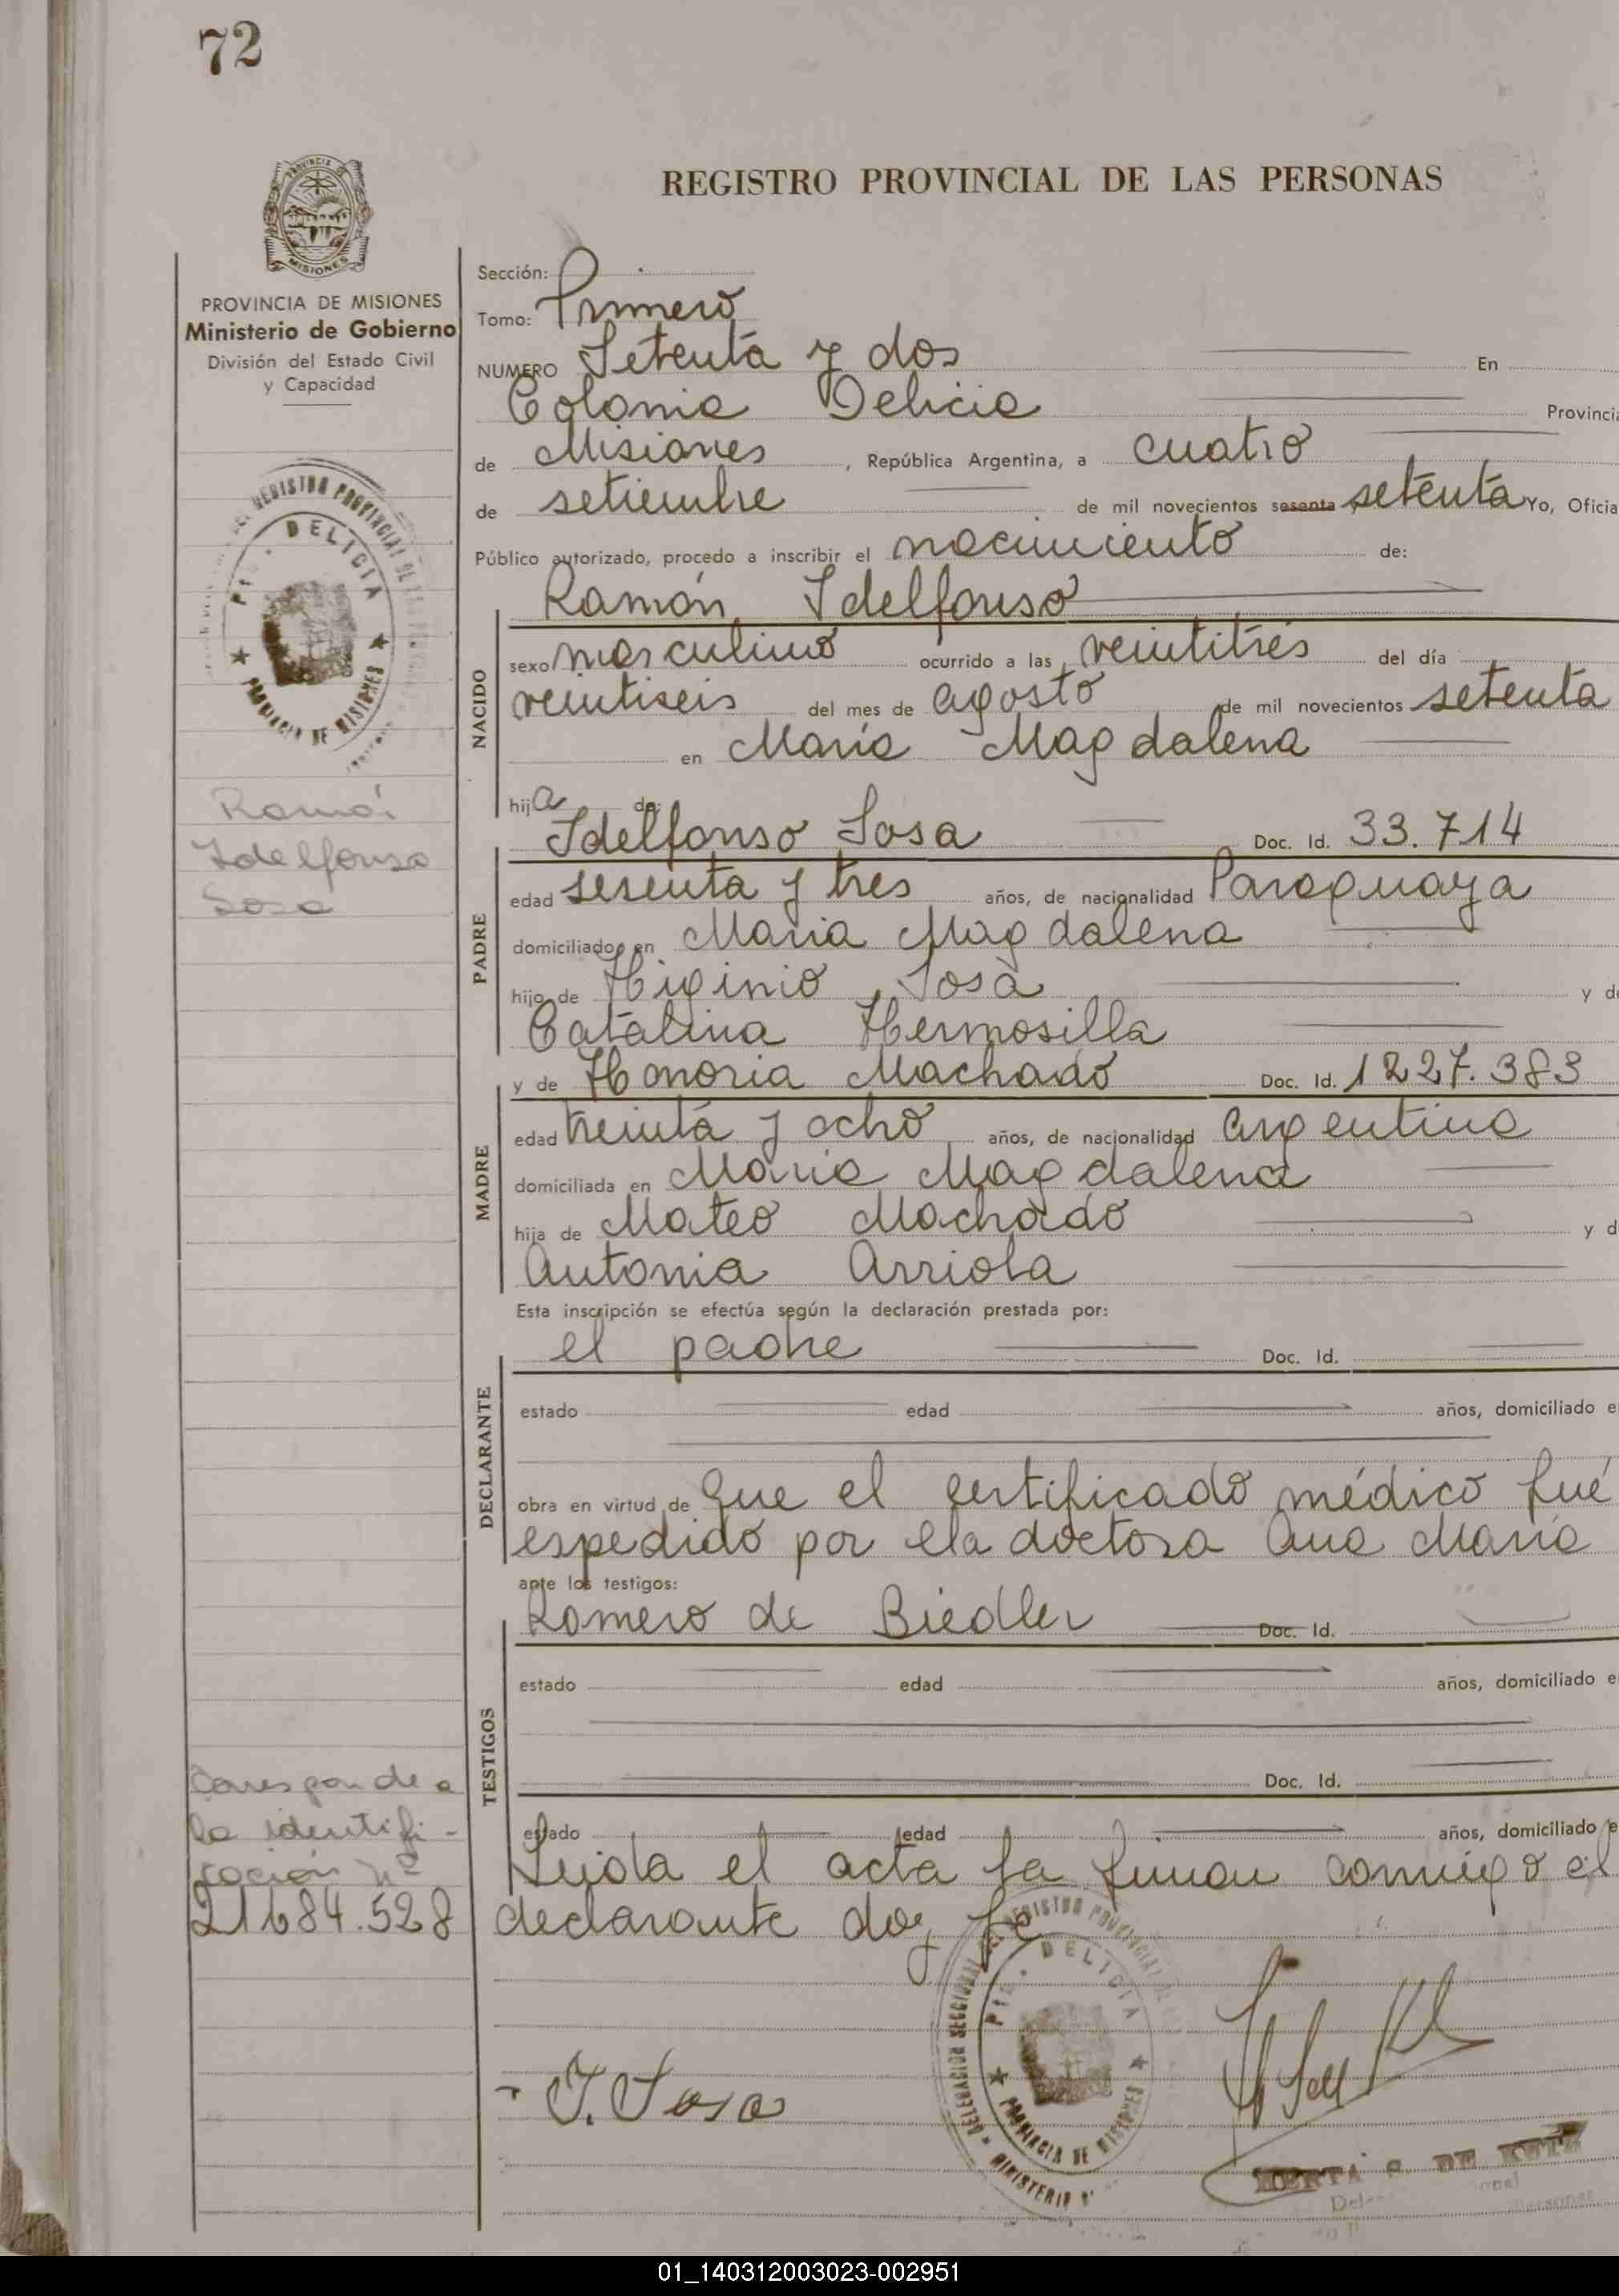 72
REGISTRO PROVINCIAL DE LAS PERSONAS
PROVINCIA DE MISIONES
Ministerio de Gobierno
División del Estado Civil
y Capacidad
Sección:
Tomo: Primero
NUMERO Setenta y dos En
Colonia Delicia Provincia
de Misiones, República Argentina, a cuatro
de setiembre de mil novecientos sesenta setenta Yo, Oficia
Público autorizado, procedo a inscribir el nacimiento de:
Ramón Idelfonso
NACIDO
sexo masculino ocurrido a las veintitrés del día
veintiseis del mes de agosto de mil novecientos setenta
en María Magdalena
hija de:
Idelfonso Sosa Doc. Id. 33.714
PADRE
edad sesenta y tres años, de nacionalidad Paraguaya
domiciliado en Maria Magdalena
hijo de Higinio Sosa y d
Catalina Hermosilla
y de Honoria Machado Doc. Id. 1227.383
MADRE
edad treinta y ocho años, de nacionalidad argentina
domiciliada en Maria Magdalena
hija de Mateo Machado y d
Antonia Arriola
Esta inscripción se efectúa según la declaración prestada por:
el padre Doc. Id.
DECLARANTE
estado edad años, domiciliado e
obra en virtud de que el certificado médico fué
espedido por ela doctora Ana María
ante los testigos:
Romero de Biedler Doc. Id.
TESTIGOS
estado edad años, domiciliado e
Doc. Id.
estado edad años, domiciliado e
Leida el acta la firman conmigo el
declarante doy fe
Ramón
Idelfonso
Sosa
Corresponde a
la identifi-
cación Nº
21684.528
REGISTRO PROVINCIAL DE
DELICIA
PROVINCIA DE MISIONES
DELEGACION SECCIONAL DEL REGISTRO PROVINCIAL DE
DELICIA
PROVINCIA DE MISIONES
MINISTERIO
I. Sosa
HERTA DE
01_140312003023-002951